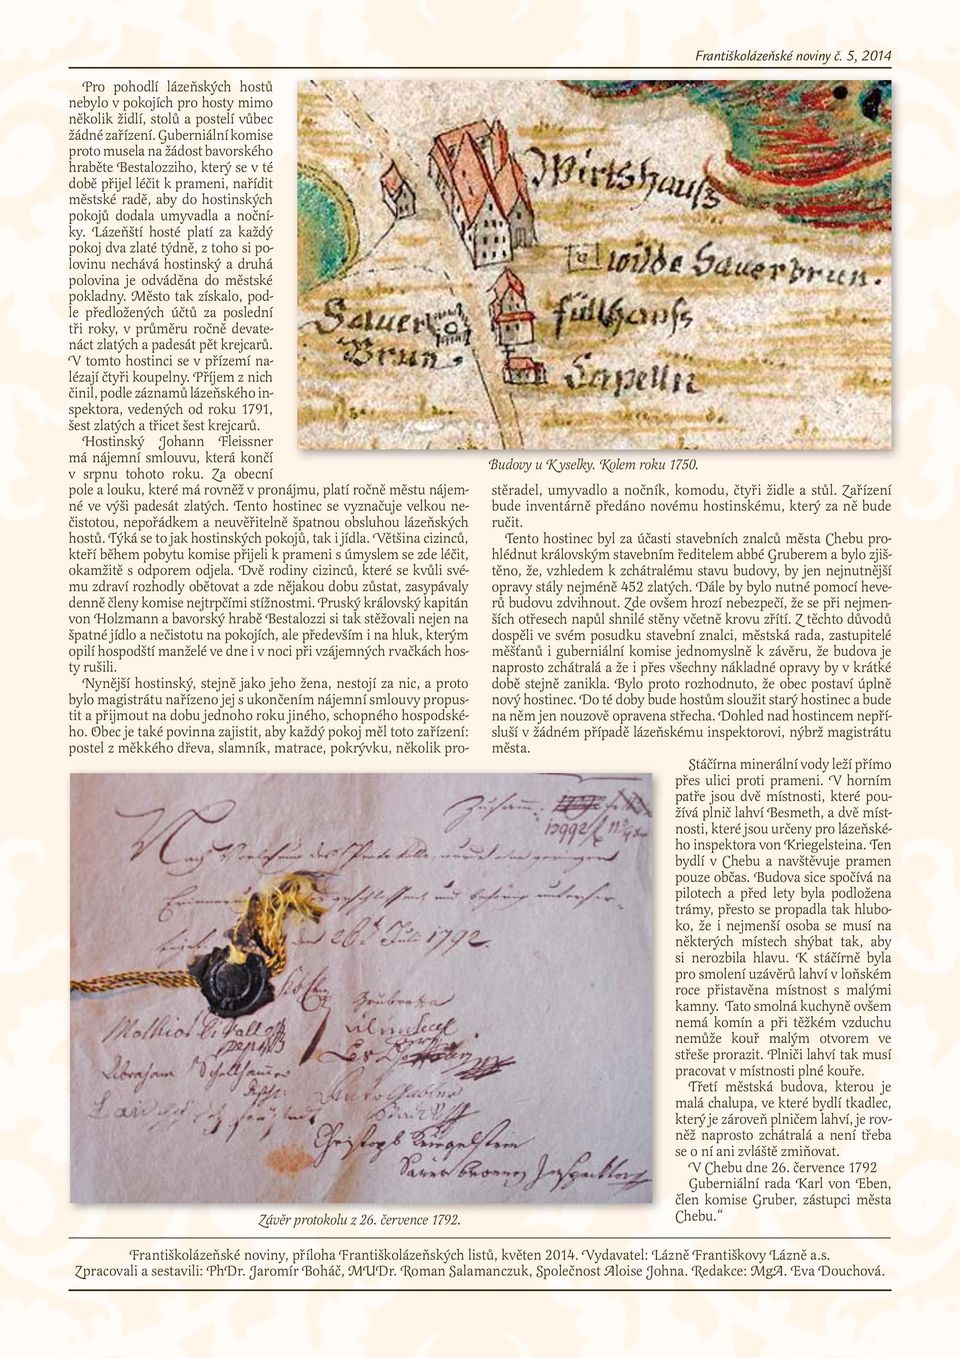 Františkolázeňské noviny č. 5, 2014
Pro pohodlí lázeňských hostů
nebylo v pokojích pro hosty mimo
několik židlí, stolů a postelí vůbec
žádné zařízení. Guberniální komise
proto musela na žádost bavorského
hraběte Bestalozziho, který se v té
době přijel léčit k prameni, nařídit
městské radě, aby do hostinských
pokojů dodala umyvadla a noční-
ky. Lázeňští hosté platí za každý
pokoj dva zlaté týdně, z toho si po-
lovinu nechává hostinský a druhá
polovina je odváděna do městské
pokladny. Město tak získalo, pod-
le předložených účtů za poslední
tři roky, v průměru ročně devate-
náct zlatých a padesát pět krejcarů.
V tomto hostinci se v přízemí na-
lézají čtyři koupelny. Příjem z nich
činil, podle záznamů lázeňského in-
spektora, vedených od roku 1791,
šest zlatých a třicet šest krejcarů.
Hostinský Johann Fleissner
má nájemní smlouvu, která končí
v srpnu tohoto roku. Za obecní
pole a louku, které má rovněž v pronájmu, platí ročně městu nájem-
né ve výši padesát zlatých. Tento hostinec se vyznačuje velkou ne-
čistotou, nepořádkem a neuvěřitelně špatnou obsluhou lázeňských
hostů. Týká se to jak hostinských pokojů, tak i jídla. Většina cizinců,
kteří během pobytu komise přijeli k prameni s úmyslem se zde léčit,
okamžitě s odporem odjela. Dvě rodiny cizinců, které se kvůli své-
mu zdraví rozhodly obětovat a zde nějakou dobu zůstat, zasypávaly
denně členy komise nejtrpčími stížnostmi. Pruský královský kapitán
von Holzmann a bavorský hrabě Bestalozzi si tak stěžovali nejen na
špatné jídlo a nečistotu na pokojích, ale především i na hluk, kterým
opilí hospodští manželé ve dne i v noci při vzájemných rvačkách hos-
ty rušili.
Nynější hostinský, stejně jako jeho žena, nestojí za nic, a proto
bylo magistrátu nařízeno jej s ukončením nájemní smlouvy propus-
tit a přijmout na dobu jednoho roku jiného, schopného hospodské-
ho. Obec je také povinna zajistit, aby každý pokoj měl toto zařízení:
postel z měkkého dřeva, slamník, matrace, pokrývku, několik pro-
Wirtshauß
wilde Sauerbrun.
Sauer
Brun
füllhauß
Capelln
Budovy u Kyselky. Kolem roku 1750.
stěradel, umyvadlo a nočník, komodu, čtyři židle a stůl. Zařízení
bude inventárně předáno novému hostinskému, který za ně bude
ručit.
Tento hostinec byl za účasti stavebních znalců města Chebu pro-
hlédnut královským stavebním ředitelem abbé Gruberem a bylo zjiš-
těno, že, vzhledem k zchátralému stavu budovy, by jen nejnutnější
opravy stály nejméně 452 zlatých. Dále by bylo nutné pomocí heve-
rů budovu zdvihnout. Zde ovšem hrozí nebezpečí, že se při nejmen-
ších otřesech napůl shnilé stěny včetně krovu zřítí. Z těchto důvodů
dospěli ve svém posudku stavební znalci, městská rada, zastupitelé
měšťanů i guberniální komise jednomyslně k závěru, že budova je
naprosto zchátralá a že i přes všechny nákladné opravy by v krátké
době stejně zanikla. Bylo proto rozhodnuto, že obec postaví úplně
nový hostinec. Do té doby bude hostům sloužit starý hostinec a bude
na něm jen nouzově opravena střecha. Dohled nad hostincem nepří-
sluší v žádném případě lázeňskému inspektorovi, nýbrž magistrátu
města.
Stáčírna minerální vody leží přímo
přes ulici proti prameni. V horním
patře jsou dvě místnosti, které pou-
žívá plnič lahví Besmeth, a dvě míst-
nosti, které jsou určeny pro lázeňské-
ho inspektora von Kriegelsteina. Ten
bydlí v Chebu a navštěvuje pramen
pouze občas. Budova sice spočívá na
pilotech a před lety byla podložena
trámy, přesto se propadla tak hlubo-
ko, že i nejmenší osoba se musí na
některých místech shýbat tak, aby
si nerozbila hlavu. K stáčírně byla
pro smolení uzávěrů lahví v loňském
roce přistavěna místnost s malými
kamny. Tato smolná kuchyně ovšem
nemá komín a při těžkém vzduchu
nemůže kouř malým otvorem ve
střeše prorazit. Plniči lahví tak musí
pracovat v místnosti plné kouře.
Třetí městská budova, kterou je
malá chalupa, ve které bydlí tkadlec,
který je zároveň plničem lahví, je rov-
něž naprosto zchátralá a není třeba
se o ní ani zvláště zmiňovat.
V Chebu dne 26. července 1792
Guberniální rada Karl von Eben,
člen komise Gruber, zástupci města
Chebu.“
26t Juli 1792.
Abraham
Christoph Kriegelstein
Inspector
Závěr protokolu z 26. července 1792.
Františkolázeňské noviny, příloha Františkolázeňských listů, květen 2014. Vydavatel: Lázně Františkovy Lázně a.s.
Zpracovali a sestavili: PhDr. Jaromír Boháč, MUDr. Roman Salamanczuk, Společnost Aloise Johna. Redakce: MgA. Eva Douchová.